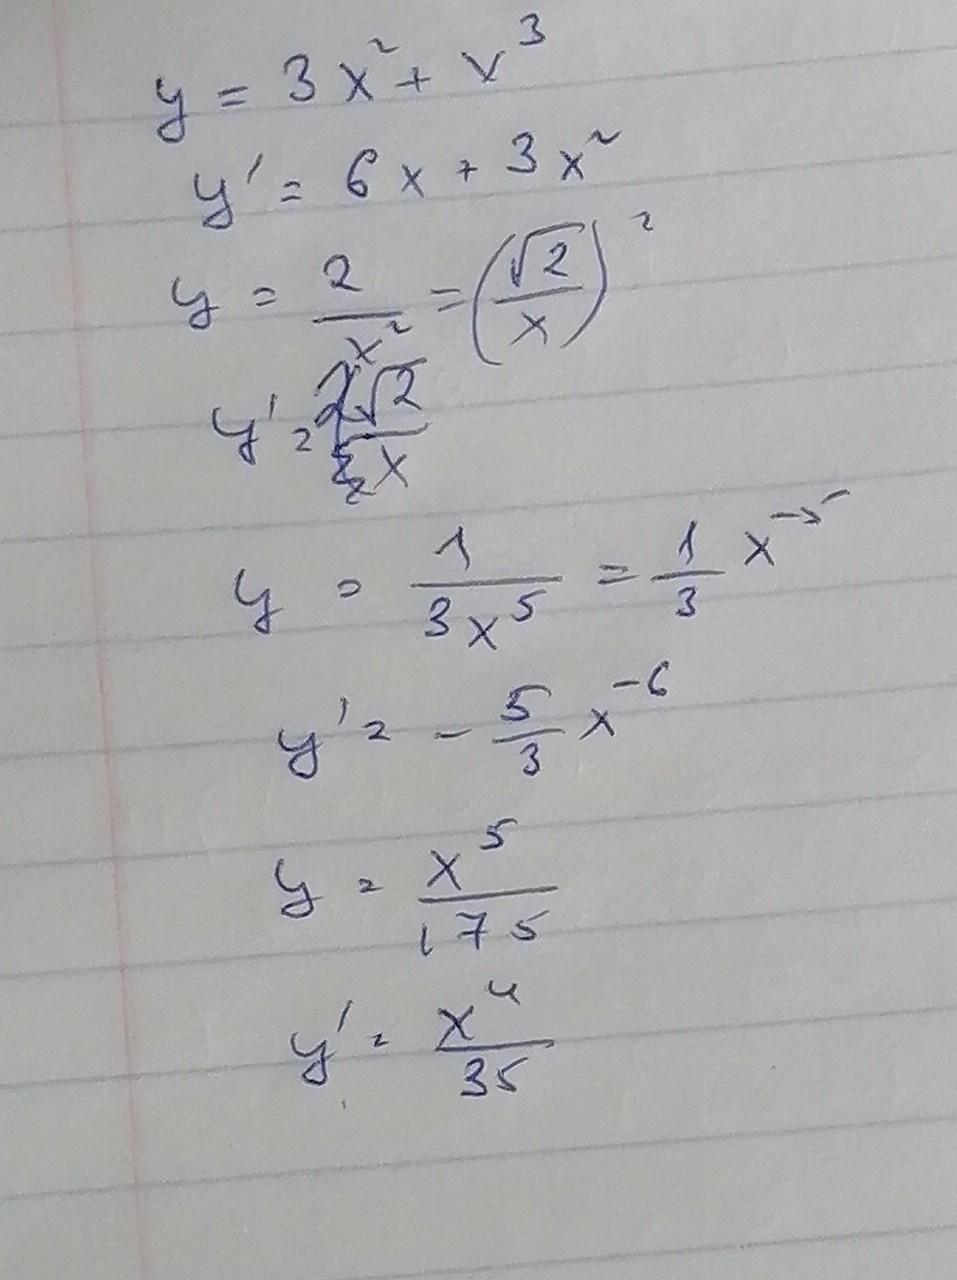 y = 3x² + x³
y' = 6x + 3x²
y = 2/x² = (√2/x)²
y' = √2/x
y = 1/(3x⁵) = 1/3 x⁻⁵
y' = - 5/3 x⁻⁶
y = x⁵/175
y' = x⁴/35